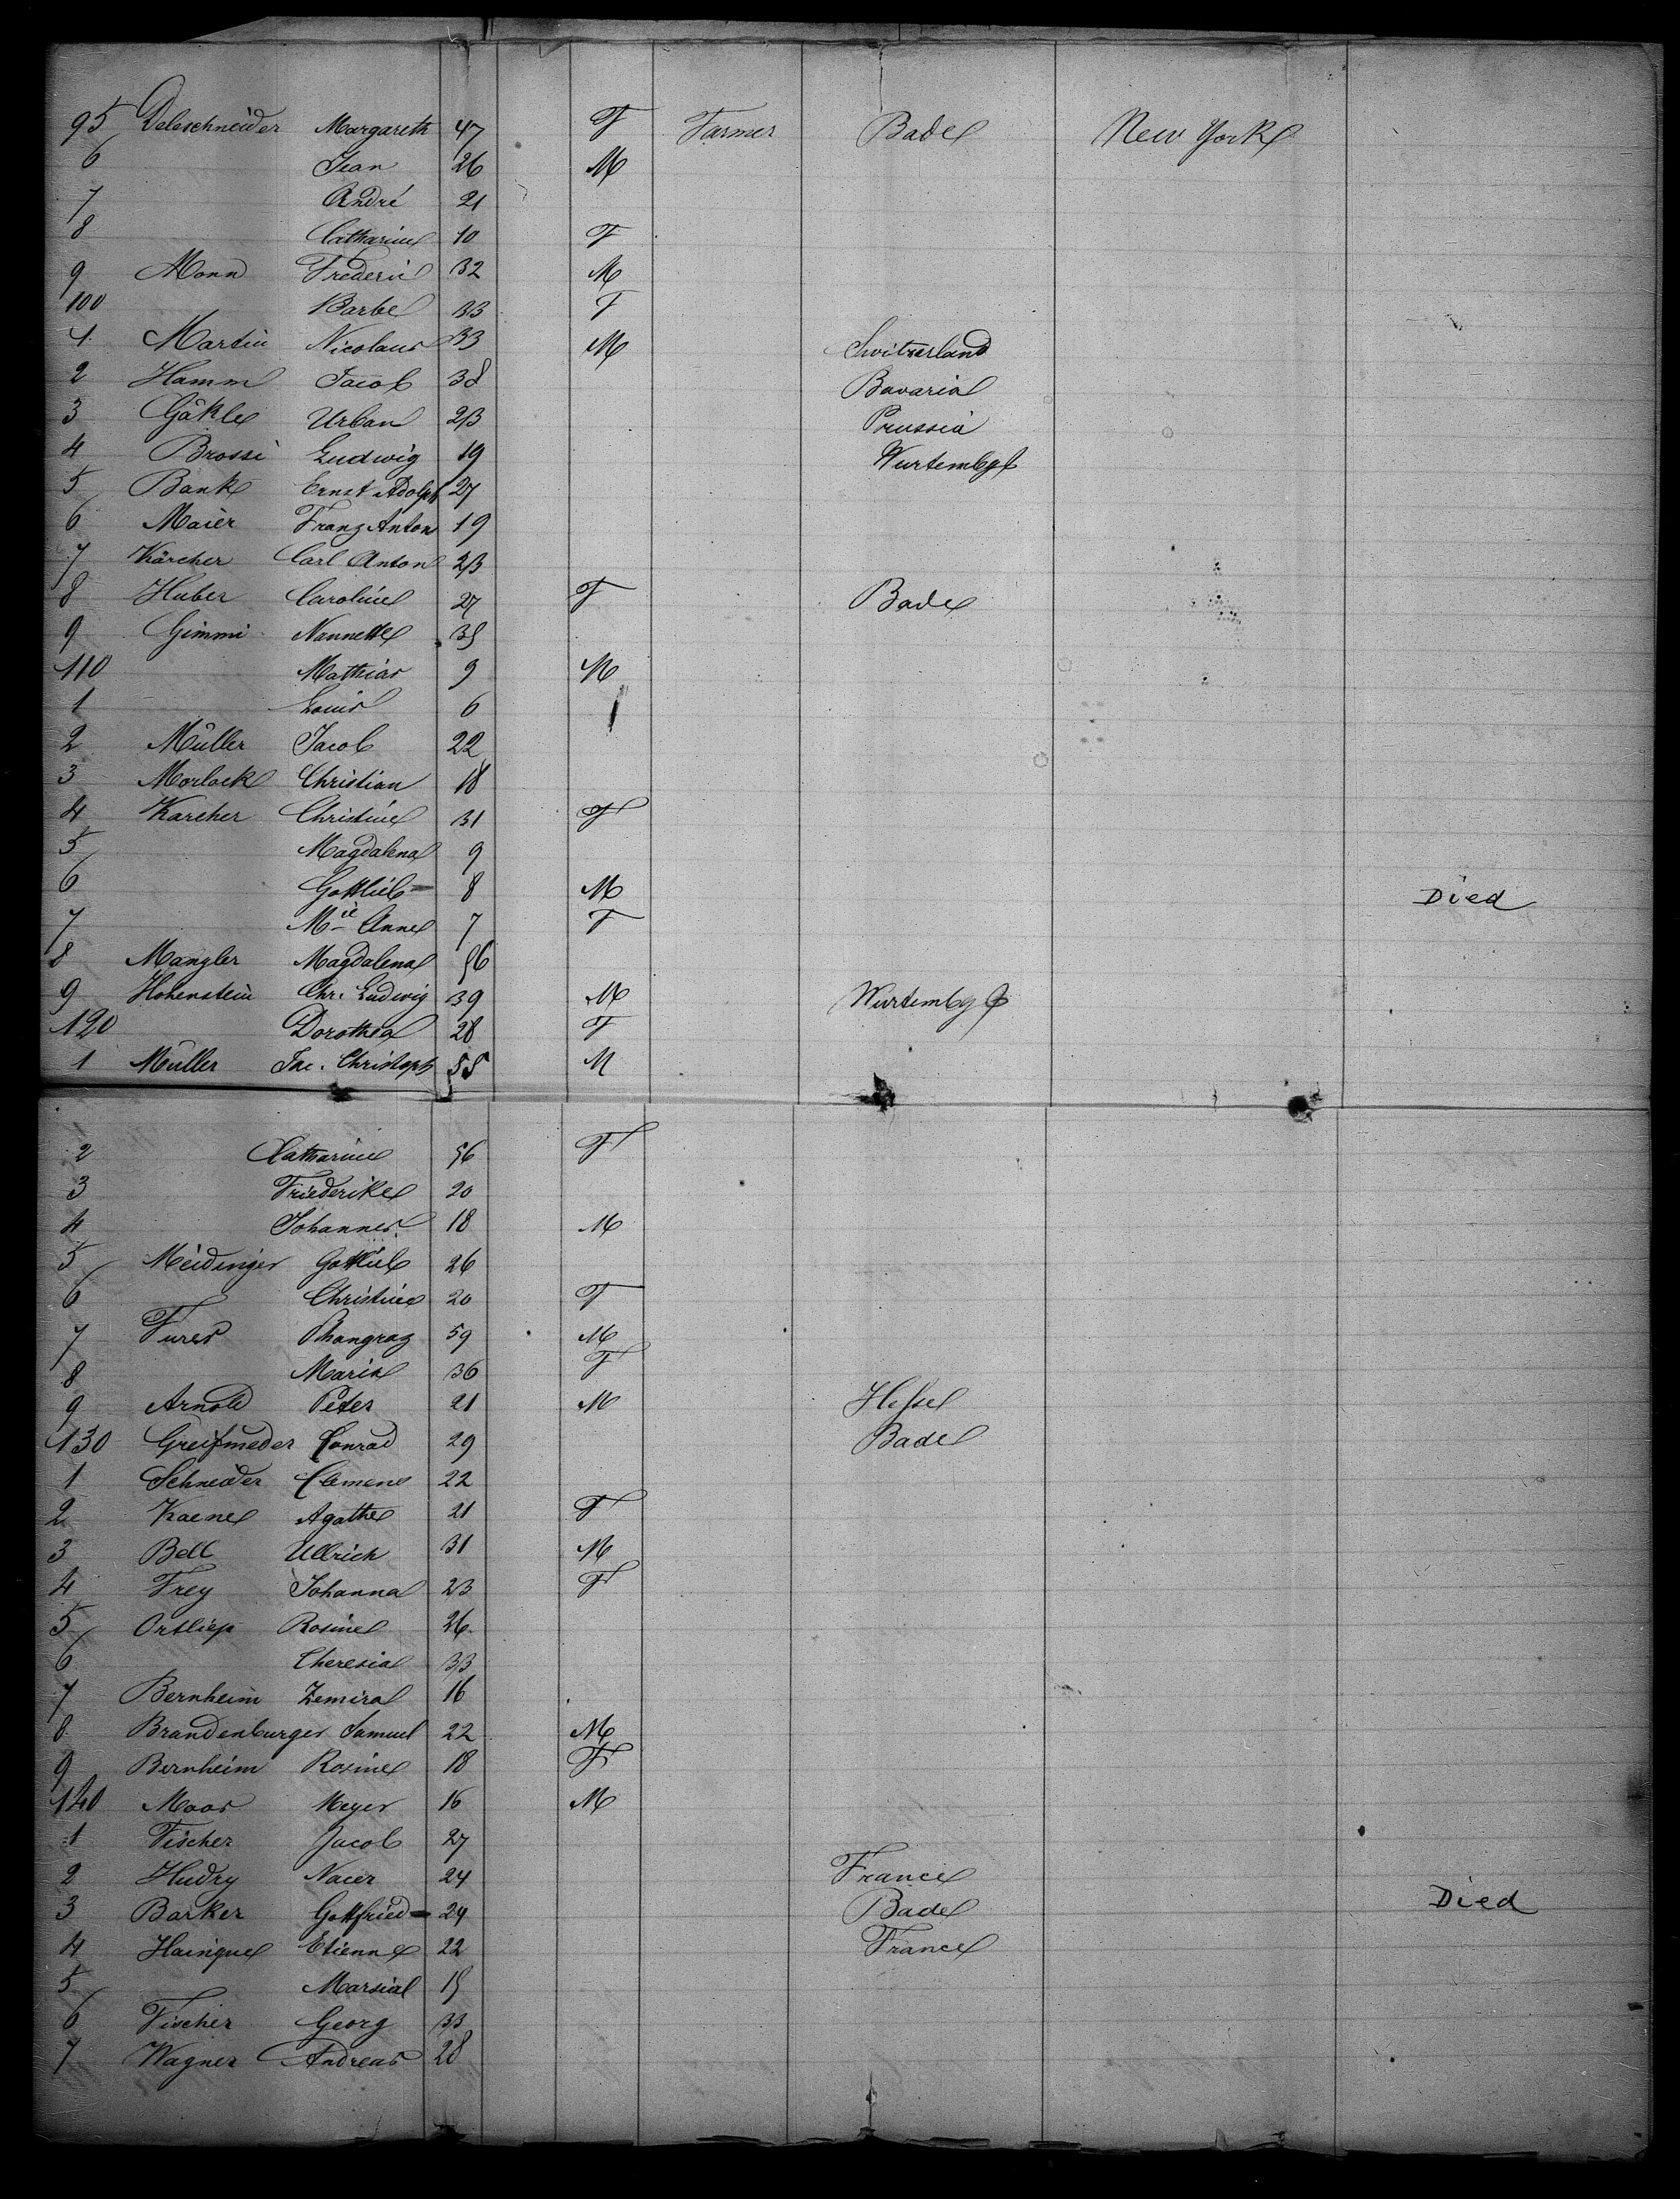 95 Deleschneider Margareth 47 F Farmer Bade New York
6 Jean 26 M
7 André 21
8 Catharine 10 F
9 Mann Frederic 32 M
100 Barbe 33 F
1 Martin Nicolaus 33 M Switzerland
2 Hamm Jacob 38 Bavaria
3 Gäkle Urban 23 Prussia
4 Brossi Ludwig 19 Wurtembg
5 Bank Ernst Adolph 27
6 Maier Franz Anton 19
7 Kärcher Carl Anton 23
8 Huber Caroline 27 F Bade
9 Gimmi Nannette 35
110 Mathias 9 M
1 Louis 6
2 Müller Jacob 22
3 Morlock Christian 18
4 Karcher Christine 31 F
5 Magdalena 9
6 Gottlieb 8 M Died
7 Mie Anne 7 F
8 Mangler Magdalena 56
9 Hohenstein Chr. Ludwig 39 M Wurtembg
120 Dorothea 28 F
1 Müller Jac. Christoph 55 M
2 Catharine 56 F
3 Friederike 20
4 Johannes 18 M
5 Meidinger Gottlieb 26
6 Christine 20 F
7 Furer 59 M
8 Maria 36 F
9 Arnold Peter 21 M Hesse
130 Greifmeder Conrad 29 Bade
1 Schneider Clemens 22
2 Kaene Agathe 21 F
3 Bell Ullrich 31 M
4 Frey Johanna 23 F
5 Ortliep Rosine 26
6 Theresia 33
7 Bernheim Zemira 16
8 Brandenburger Samuel 22 M
9 Bernheim Rosine 18 F
140 Moos Meyer 16 M
1 Fischer Jacob 27
2 Hudry Naier 24 France
3 Barker Gottfried 24 Bade Died
4 Hainque Etienne 22 France
5 Marsial 15
6 Fischer Georg 33
7 Wagner Andreas 28